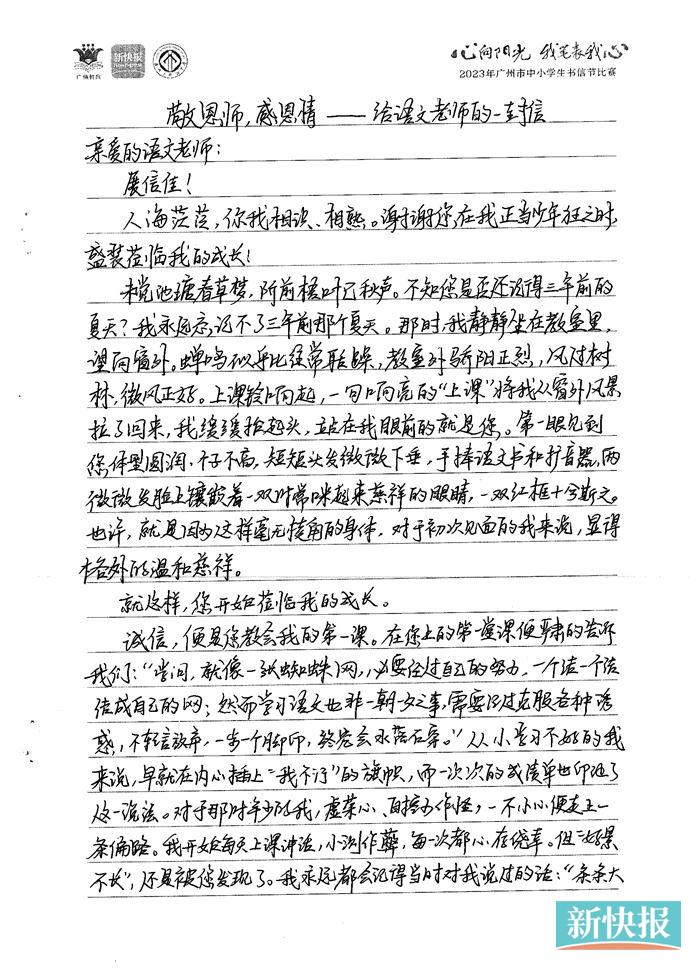 广州教育
新快报
心向阳光 我笔表我心
2023年广州市中小学生书信节比赛
敬恩师,感恩情——给语文老师的一封信
亲爱的语文老师:
展信佳!
人海茫茫,你我相识、相熟。谢谢您,在我正当少年狂之时,
盛装莅临我的成长!
未觉池塘春草梦,阶前梧叶已秋声。不知您是否还记得三年前的
夏天?我永远忘记不了三年前那个夏天。那时,我静静坐在教室里,
望向窗外。蝉鸣似乎比经常聒噪,教室外骄阳正烈,风过树
林,微风正好。上课铃响起,一句响亮的“上课”将我从窗外风景
拉了回来,我缓缓抬起头,站在我眼前的就是您。第一眼见到
您体型圆润,个子不高,短短头发微微下垂,手捧语文书和扩音器,两
微微发脸上镶嵌着一双时常眯起来慈祥的眼睛,一双红框十分斯文。
也许,就是因为这样毫无棱角的身体,对于初次见面的我来说,显得
格外的温和慈祥。
就这样,您开始莅临我的成长。
诚信,便是您教会我的第一课。在您上的第一堂课便严肃的告诉
我们:“学问,就像一张蜘蛛网,必要经过自己的努力,一个结一个结
结成自己的网;然而学习语文也非一朝一夕之事,需要经过克服各种诱
惑,不轻言放弃,一步一个脚印,终究会水落石穿。”从小学习不好的我
来说,早就在内心插上“我不行”的旗帜,而一次次的成绩单也印证了
这一说法。对于那时年少的我,虚荣心、自控力作怪,一不小心便走上一
条偏路。我开始每天上课冲法,小测作弊,每一次都心存侥幸。但“好景
不长”,还是被您发现了。我永远都会记得当时对我说过的话:“条条大
新快报